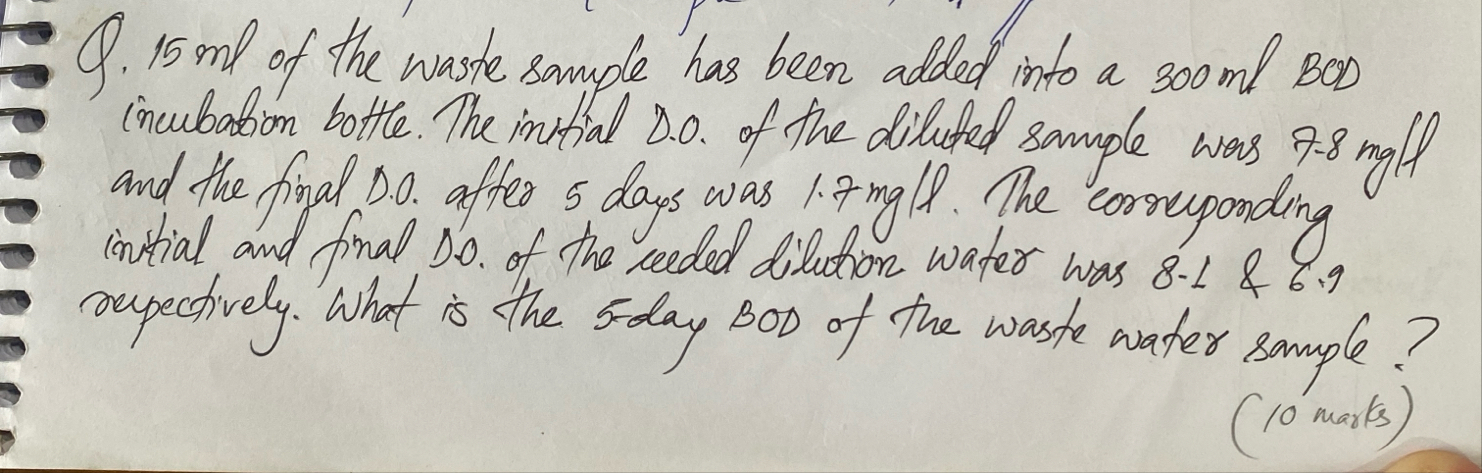 Q. 15 ml of the waste sample has been added into a 300 ml BOD
incubation bottle. The initial D.O. of the diluted sample was 7.8 mg/l
and the final D.O. after 5 days was 1.7 mg/l. The corresponding
initial and final D.O. of the seeded dilution water was 8.1 & 6.9
respectively. What is the 5-day BOD of the waste water sample?
(10 marks)